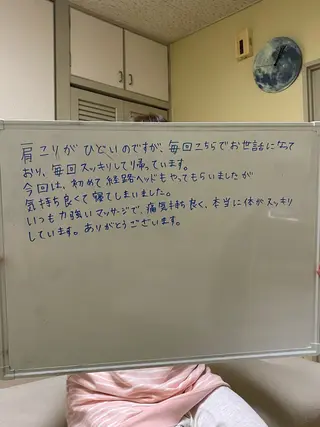 肩こりがひどいのですが、毎回こちらでお世話になって
おり、毎回スッキリして帰っています。
今回は、初めて経路ヘッドもやってもらいましたが
気持ち良くて寝てしまいました。
いつも力強いマッサージで、痛気持ち良く、本当に体がスッキリ
しています。ありがとうございます。